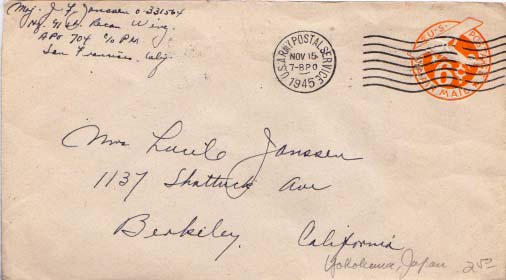 Maj. J. F. Janssen O-331564
Hq. 91st Recon Wing
APO 704 c/o PM
San Francisco, Calif.
U.S. ARMY POSTAL SERVICE
NOV 15
7-8 PO
1945
U.S. POSTAGE
6¢
AIR MAIL
Mrs Lucile Janssen
1137 Shattuck Ave
Berkeley, California
Yokohama, Japan 25¢